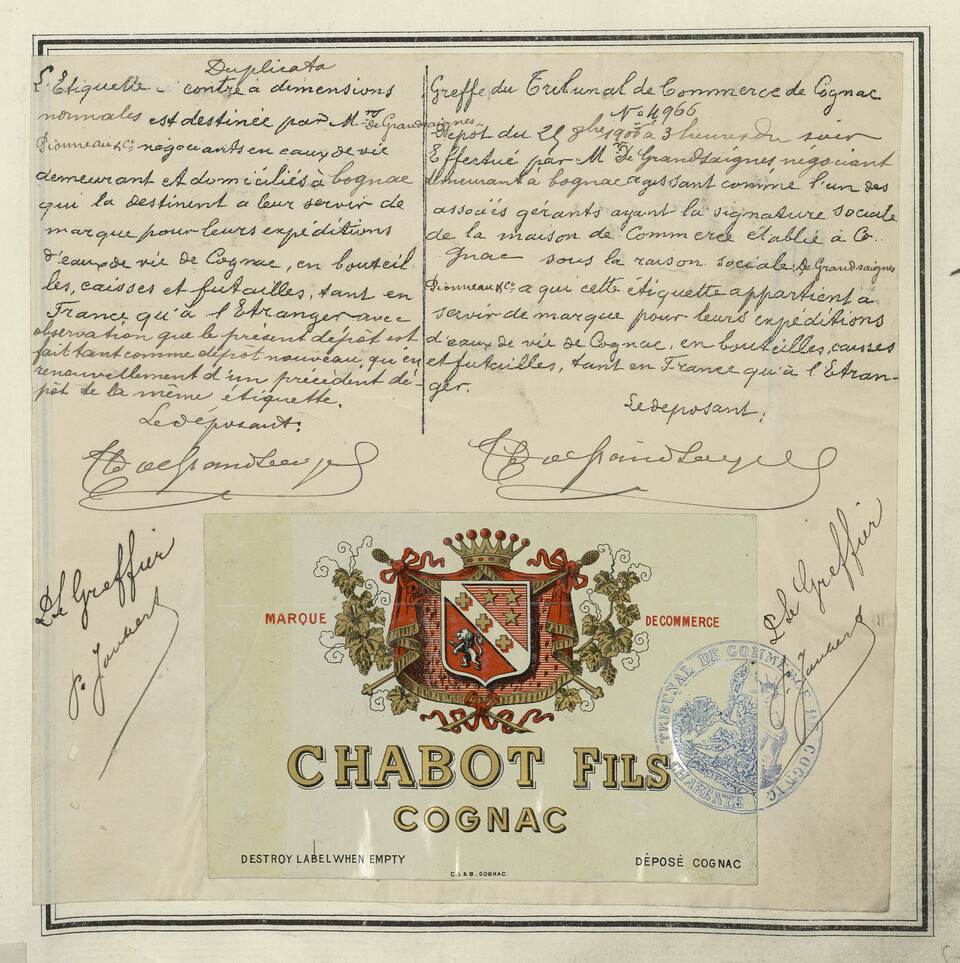 Duplicata
L'Etiquette ci contre à dimensions
normales est destinée par Mrs de Grandsaignes
Pionneau & Co négociants en eaux de vie
demeurant et domiciliés à Cognac
qui la destinent a leur servir de
marque pour leurs expéditions
d'eaux de vie de Cognac, en bouteil
les, caisses et futailles, tant en
France qu'à l'Etranger avec
observation que le présent dépôt est
fait tant comme dépôt nouveau, qu'en
renouvellement d'un précédent dé-
pôt de la même étiquette.
Le déposant:
Greffe du Tribunal de Commerce de Cognac
No 4966
Dépot du 28 9bre 1900 à 3 heures du soir
Effectué par Mr De Grandsaignes négociant
demeurant à Cognac agissant comme l'un des
associés gérants ayant la signature sociale
de la maison de Commerce établie à Co..
gnac sous la raison sociale: De Grandsaignes
Pionneau & Co a qui cette étiquette appartient à
servir de marque pour leurs expéditions
d'eaux de vie de Cognac, en bouteilles, caisses
et futailles, tant en France qu'à l'Etran-
ger.
Le deposant;
Le Greffier
Le Greffier
MARQUE DE COMMERCE
CHABOT FILS
COGNAC
DESTROY LABEL WHEN EMPTY
DÉPOSÉ COGNAC
C. L & B.. COGNAC.
TRIBUNAL DE COMMERCE DE COGNAC
CHARENTE